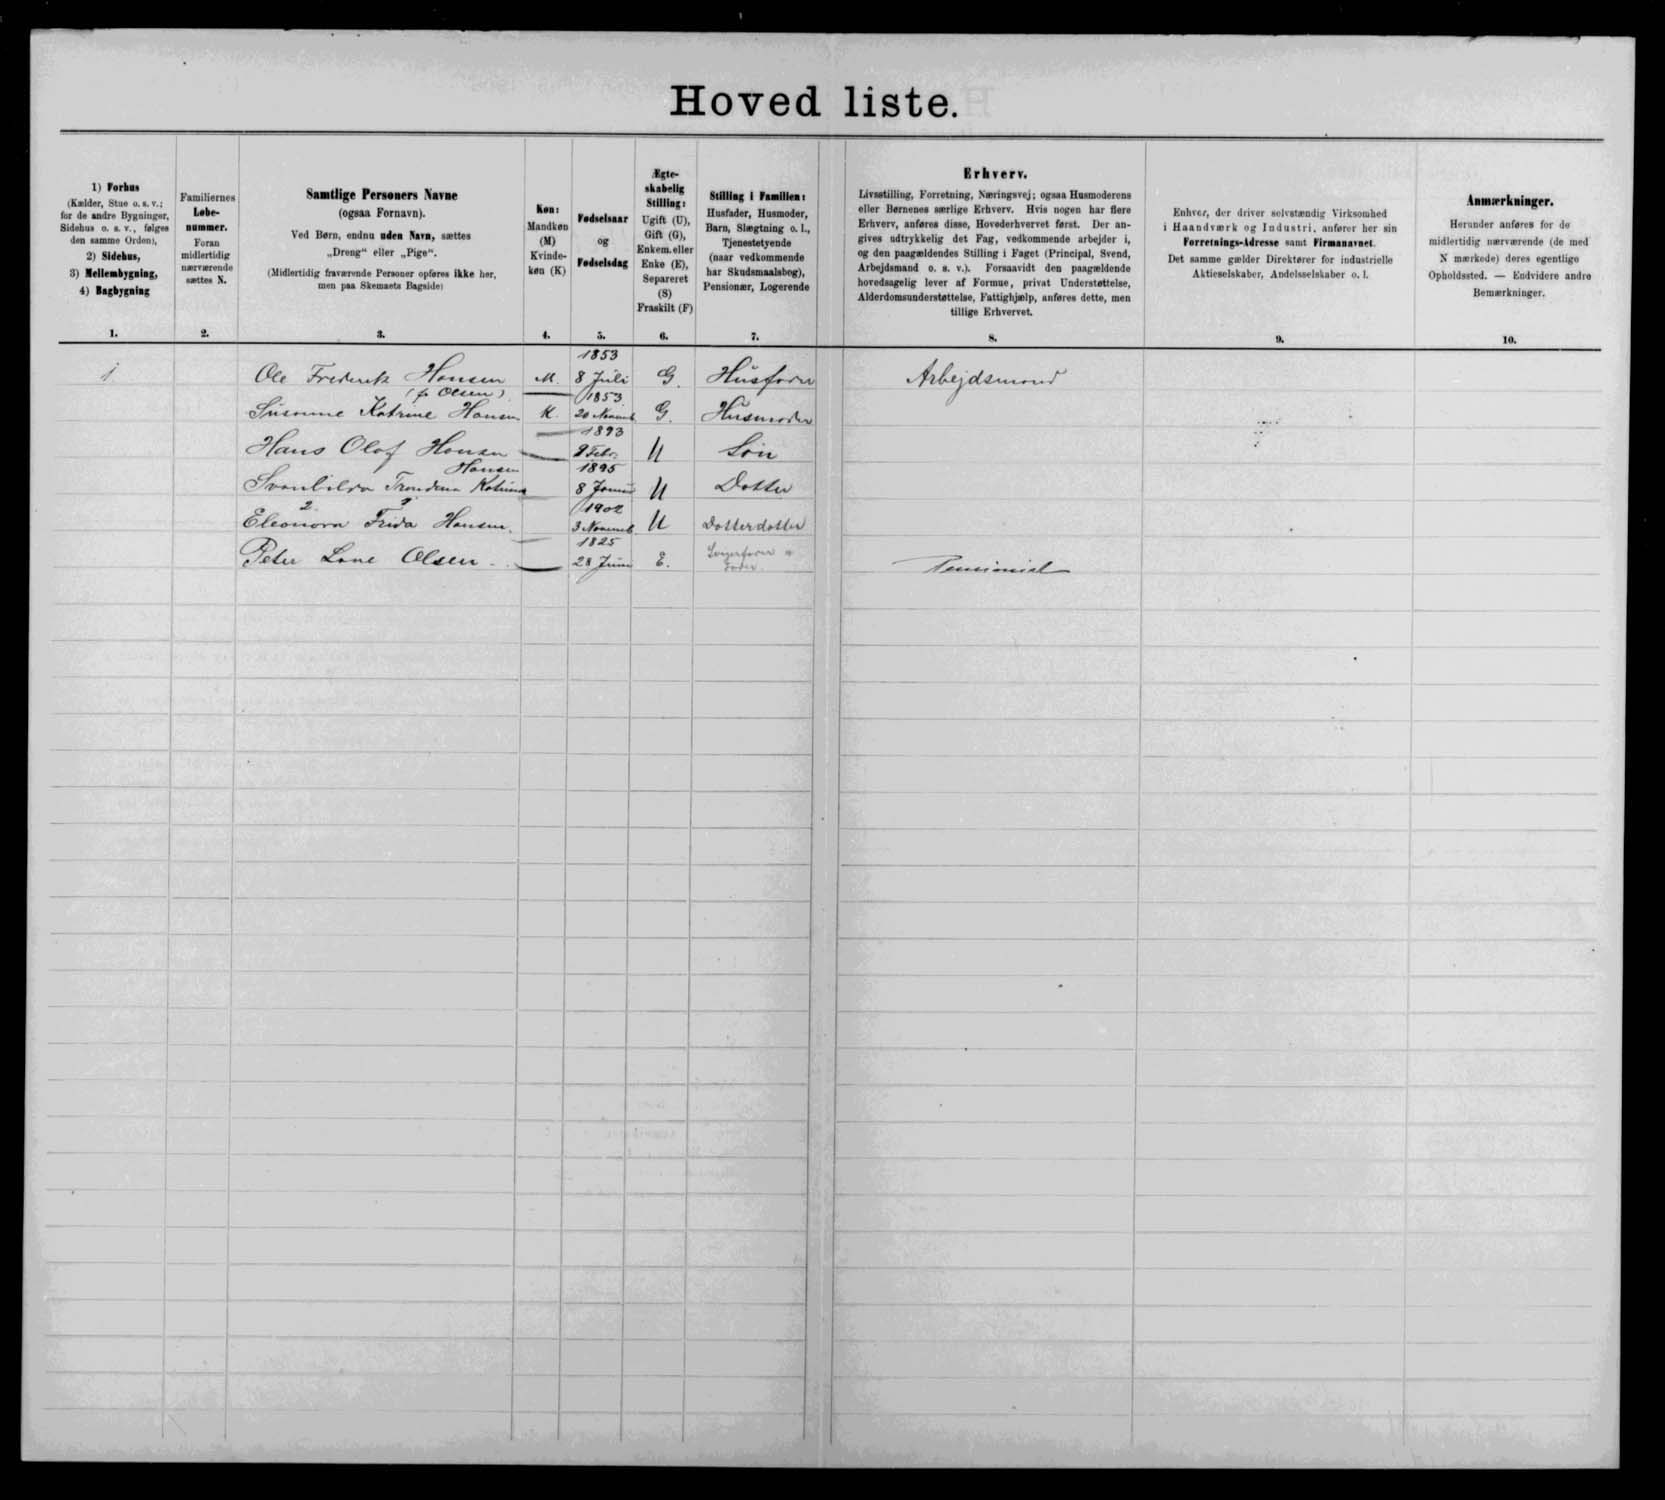 Hoved liste.
1) Forhus
(Kælder, Stue o. s. v.;
for de andre Bygninger,
Sidehus o. s. v., følges
den samme Orden),
2) Sidehus,
3) Mellembygning,
4) Bagbygning
1.
Familiernes
Løbe-
nummer.
Foran
midlertidig
nærværende
sættes N.
2.
Samtlige Personers Navne
(ogsaa Fornavn).
Ved Børn, endnu uden Navn, sættes
„Dreng“ eller „Pige“.
(Midlertidig fraværende Personer opføres ikke her,
men paa Skemaets Bagside)
3.
Køn:
Mandkøn
(M)
Kvinde-
køn (K)
4.
Fødselsaar
og
Fødselsdag
5.
Ægte-
skabelig
Stilling:
Ugift (U),
Gift (G),
Enkem. eller
Enke (E),
Separeret
(S)
Fraskilt (F)
6.
Stilling i Familien:
Husfader, Husmoder,
Barn, Slægtning o. l.,
Tjenestetyende
(naar vedkommende
har Skudsmaalsbog),
Pensionær, Logerende
7.
Erhverv.
Livsstilling, Forretning, Næringsvej; ogsaa Husmoderens
eller Børnenes særlige Erhverv. Hvis nogen har flere
Erhverv, anføres disse, Hovederhvervet først. Der an-
gives udtrykkelig det Fag, vedkommende arbejder i,
og den paagældendes Stilling i Faget (Principal, Svend,
Arbejdsmand o. s. v.). Forsaavidt den paagældende
hovedsagelig lever af Formue, privat Understøttelse,
Alderdomsunderstøttelse, Fattighjælp, anføres dette, men
tillige Erhvervet.
8.
Enhver, der driver selvstændig Virksomhed
i Haandværk og Industri, anfører her sin
Forretnings-Adresse samt Firmanavnet.
Det samme gælder Direktører for industrielle
Aktieselskaber, Andelsselskaber o. l.
9.
Anmærkninger.
Herunder anføres for de
midlertidig nærværende (de med
N mærkede) deres egentlige
Opholdssted. — Endvidere andre
Bemærkninger.
10.
1853
1 Ole Frederik Hansen M. 8 Juli G. Husfader Arbejdsmand
(f. Olsen) 1853
Susanne Katrine Hansen K. 20 Novemb G. Husmoder
1893
Hans Olaf Hansen 9 Febr. U Søn
Hansen 1895
Svanhilda Katrina 8 Januar U Datter
1902
Eleonora Frida Hansen. 3 Novemb. U Datterdatter
1825
Peter Olsen 28 Juni E. Svigerfader
Fader.
Pensionist